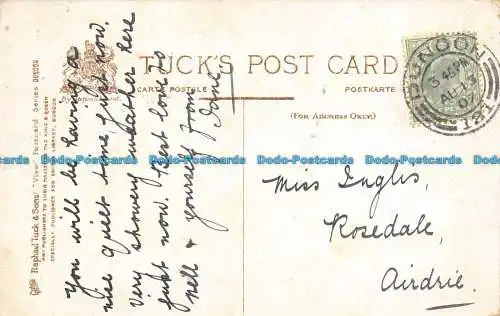 TUCK'S POST CARD
CARTE POSTALE
POSTKARTE
(FOR ADDRESS ONLY.)
By Appointment.
Raphael Tuck & Sons' "View" Postcard Series
ART PUBLISHERS TO THEIR MAJESTIES THE KING & QUEEN
You will be having a
nice quiet time just now.
Very showery weather here
just now. Best love to
Nell & yourself from
Jane
DUNOON
3 45 PM
AU
Miss Inglis,
Rosedale,
Airdrie.
Dodo-Postcards Dodo-Postcards Dodo-Postcards Dodo-Postcards Dodo-Postcards